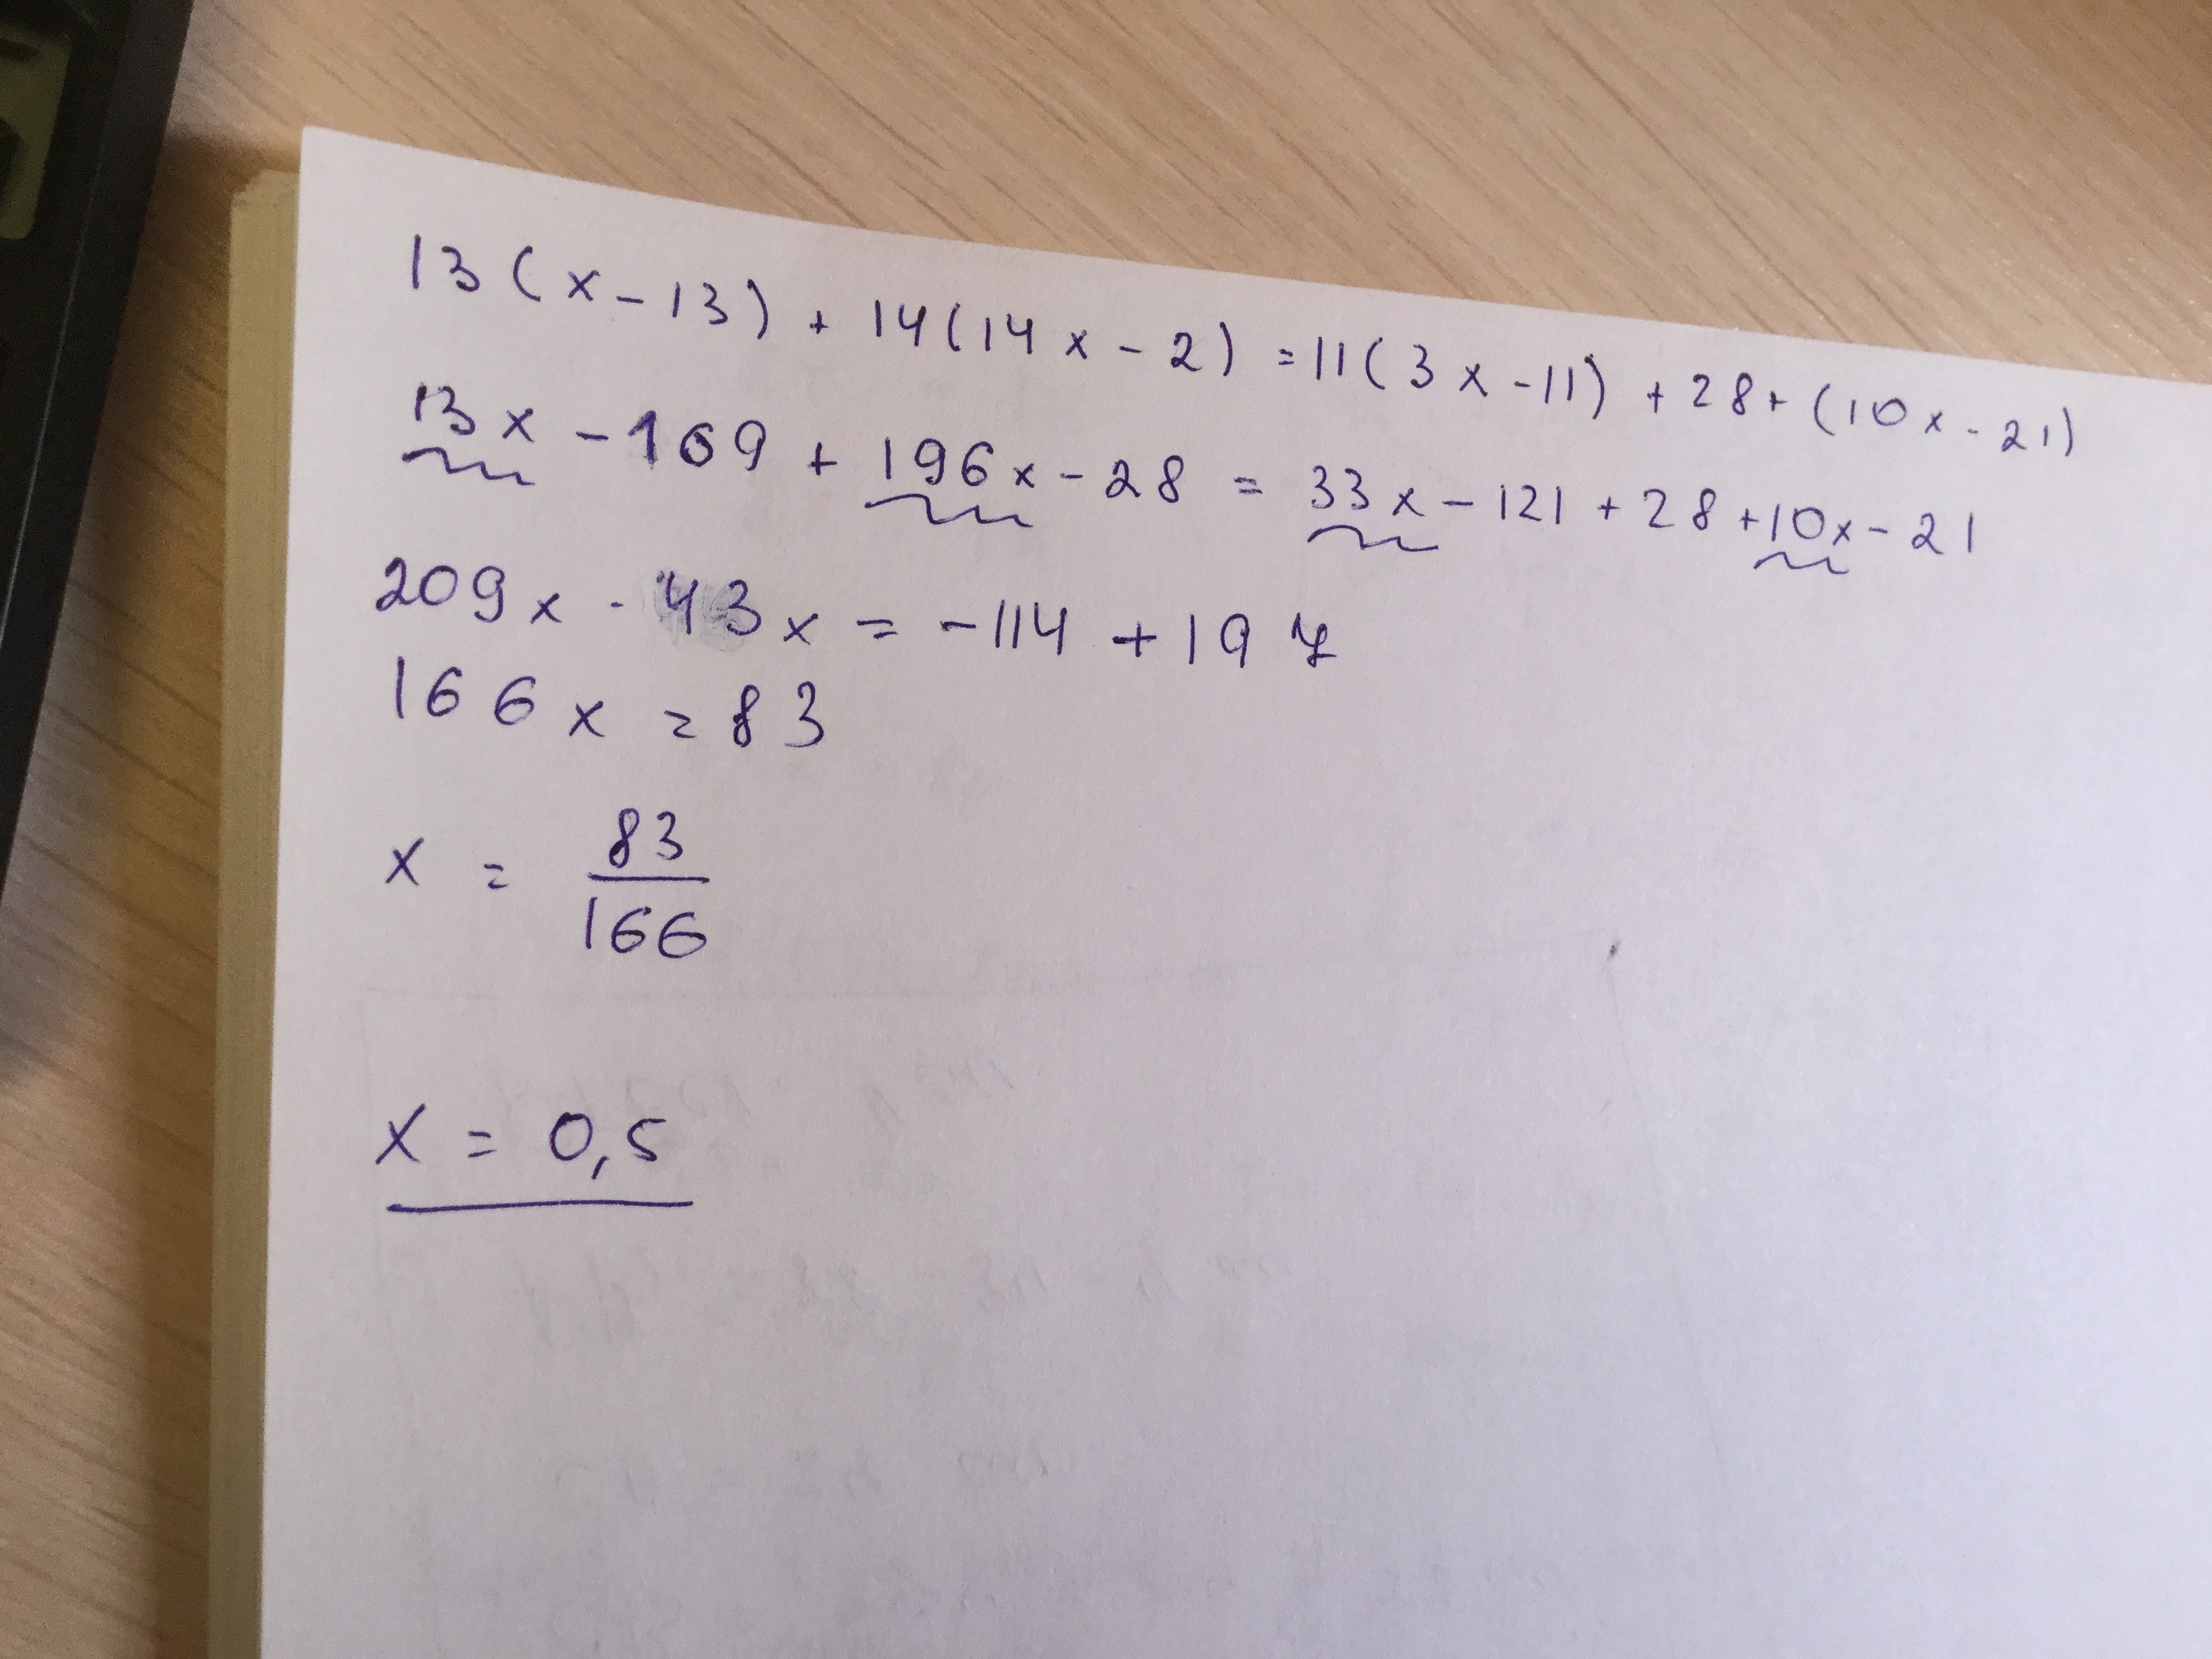 13(x-13) + 14(14x-2) = 11(3x-11) + 28 + (10x-21)
13x - 169 + 196x - 28 = 33x - 121 + 28 + 10x - 21
209x - 43x = -114 + 197
166x = 83
x = 83/166
x = 0,5